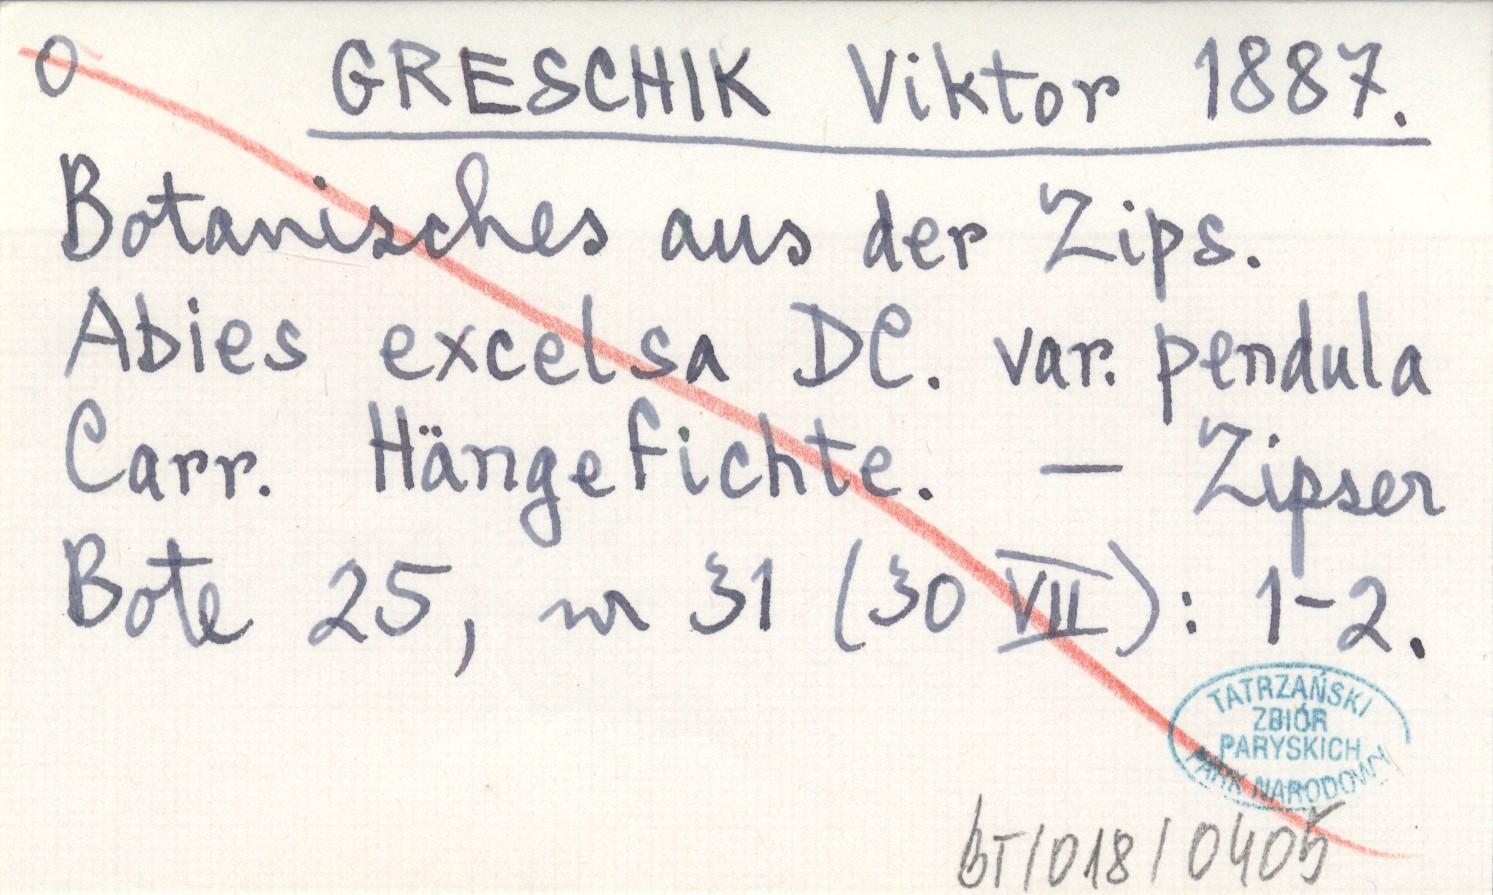 O GRESCHIK Viktor 1887.
Botanisches aus der Zips.
Abies excelsa DC. var. pendula
Carr. Hängefichte. — Zipser
Bote 25, nr 31 (30 VII): 1-2.
TATRZAŃSKI
ZBIÓR
PARYSKICH
PARK NARODOWY
BT/018/0405